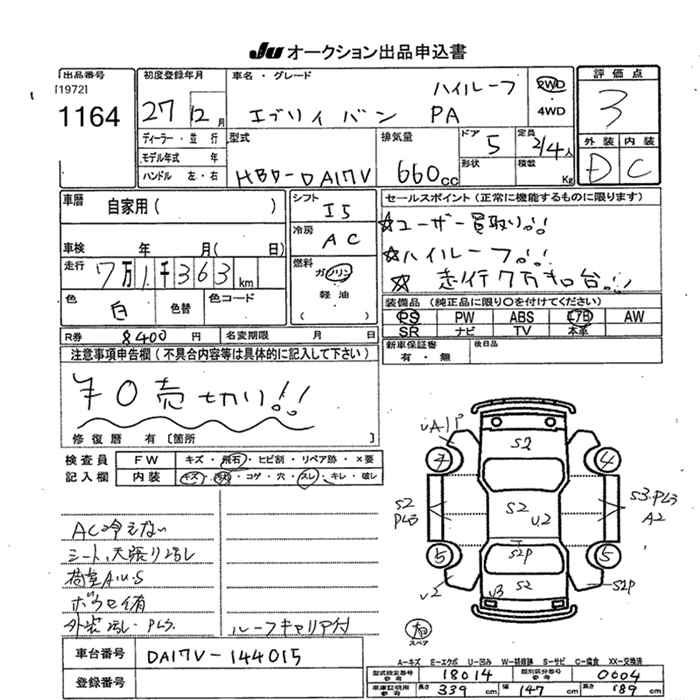 JU オークション出品申込書
出品番号
[1972]
1164
初度登録年月
27 12月
ディーラー・並 行
モデル年式 年
ハンドル 左・右
車名・グレード
ハイルーフ
エブリィバン PA
2WD
・
4WD
型式
HBD-DA17V
排気量
660cc
ドア
5
形状
定員
2/4人
積載
Kg
評価点
3
外装 内装
D C
車暦 自家用( )
車検 年 月( 日)
走行 7万1千363km
色 白 色替 色コード
シフト
I5
冷房
AC
燃料
ガソリン
・
軽油
( )
セールスポイント(正常に機能するものに限ります)
☆ユーザー買取り!!
☆ハイルーフ!!
☆走行7万キロ台!!
装備品(純正品に限り○を付けてください)
PS PW ABS エアB AW
SR ナビ TV 本革
R券 8400円 名変期限 月 日
新車保証書
有・無
後日品
注意事項申告欄(不具合内容等は具体的に記入して下さい)
¥0売切り!!
修復歴 有[箇所 ]
検査員 FW キズ・飛石・ヒビ割・リペア跡・×要
記入欄 内装 キズ・汚れ・コゲ・穴・スレ・キレ・破レ
AC冷えない
シート、天張り汚レ
荷室A.U.S
ボウセイ有
外装汚レ・PL3
ルーフキャリア付
UA1P
S2
7
4
S2
PL3
S2
U2
S3.PL3
A2
S2P
5
5
U2
U3
S2
S2P
スペア
A-キズ E-エクボ U-凹み W-補修跡 S-サビ C-腐食 XX-交換済
車台番号 DA17V-144015
登録番号
型式指定番号 18014 類別区分番号 0004
車庫証明用参考 長さ 339cm 幅 147cm 高さ 189cm